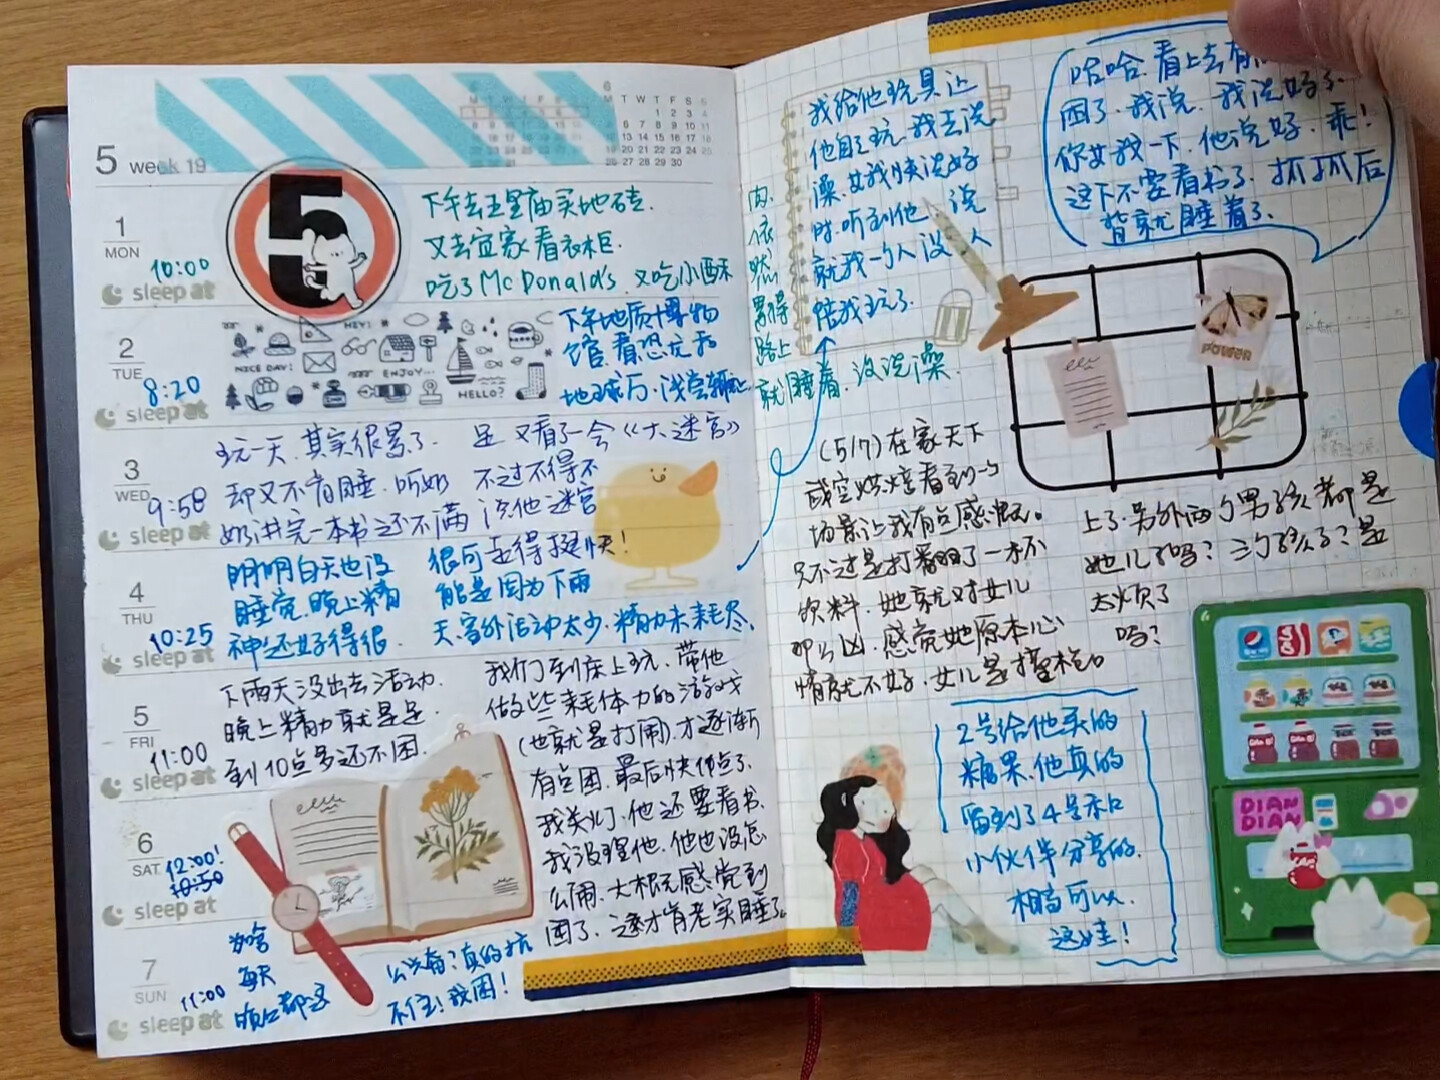 5 week 19
1
MON
10:00
sleep at
下午去五里庙买地砖.
又去宜家看衣柜.
吃了McDonald's 又吃小酥
肉.
2
TUE
8:20
sleep at
HEY!
NICE DAY!
ENJOY...
HELLO?
下午地质博物
馆.看恐龙和
地球厅.
依然累得路上
就睡着.没洗澡.
3
WED
9:50
sleep at
玩一天.其实很累了.
却又不肯睡.听奶
奶讲完一本书还不满
足 又看了一会《大迷宫》
不过不得不
说他迷宫
走得挺快!
4
THU
10:25
sleep at
明明白天也没
睡觉.晚上精
神还好得很.
很可
能是因为下雨
天.室外活动太少.精力未耗尽.
5
FRI
11:00
sleep at
下雨天没出去活动.
晚上精力就是足.
到10点多还不困.
我们到床上玩.带他
做些耗体力的游戏
(也就是打闹).才逐渐
有点困.最后快12点了.
我关灯.他还要看书.
我没理他.他也没怎
么闹.大概感觉到
困了.这才肯老实睡了.
6
SAT
12:00!
10:50
sleep at
7
SUN
11:00
sleep at
为啥
每天
晚上都这
么兴奋?真的抗
不住!我困!
我给他玩具让
他自己玩.我去洗
澡.
时.听到他 说
就我一个人没人
陪我玩了.
哈哈.看上去有
困了.我说.我洗好了.
你 我一下.他说好.乖!
这下不要看书了.抓抓后
背就睡着了.
(5/7)在家天下
烘焙看到一个
场景让我有点感慨。
只不过是打翻了一杯
饮料.她就对女儿
那么凶.感觉她原本心
情就不好.女儿是撞枪口
上了.另外两个男孩都是
她儿子吗?三个孩子?是
太烦了
吗?
2号给他买的
糖果.他真的
留到了4号和
小伙伴分享的.
相当可以.
这娃!
DIAN
DIAN